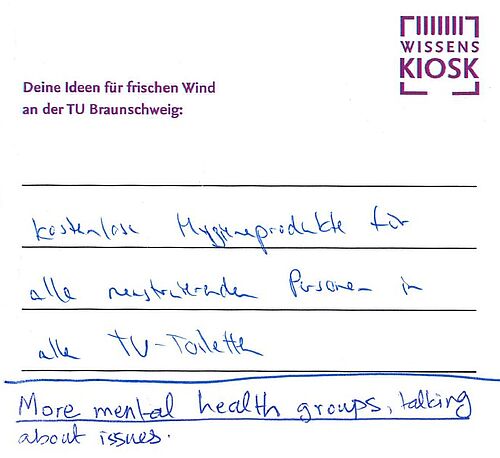 WISSENS
KIOSK
Deine Ideen für frischen Wind
an der TU Braunschweig:
kostenlose Hygieneprodukte für
alle menstruierenden Personen in
alle TU-Toiletten
More mental health groups, talking
about issues.